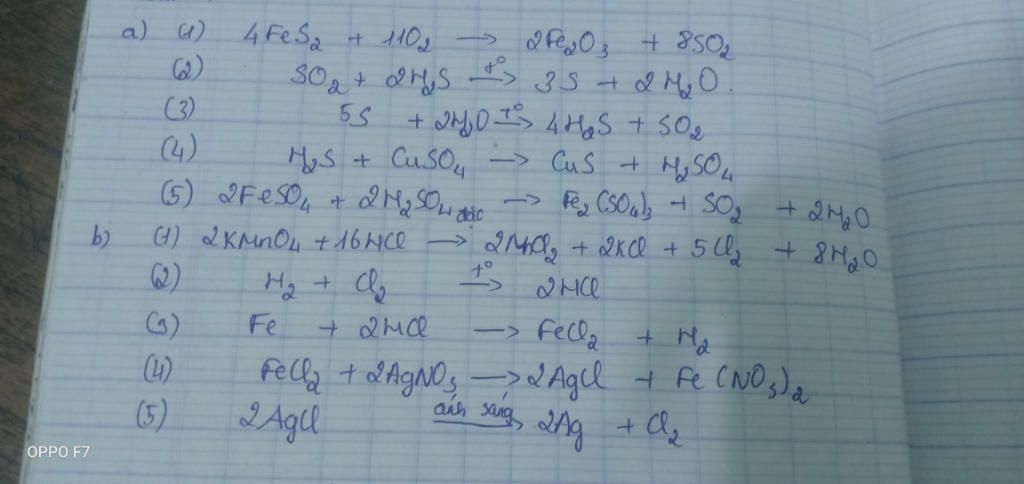 a) (1) 4FeS2 + 11O2 → 2Fe2O3 + 8SO2
(2) SO2 + 2H2S t° → 3S + 2H2O.
(3) 5S + 2H2O t° → 4H2S + SO2
(4) H2S + CuSO4 → CuS + H2SO4
(5) 2FeSO4 + 2H2SO4 đặc → Fe2(SO4)3 + SO2 + 2H2O
b) (1) 2KMnO4 + 16HCl → 2MnCl2 + 2KCl + 5Cl2 + 8H2O
(2) H2 + Cl2 t° → 2HCl
(3) Fe + 2HCl → FeCl2 + H2
(4) FeCl2 + 2AgNO3 → 2AgCl + Fe(NO3)2
(5) 2AgCl ánh sáng → 2Ag + Cl2
OPPO F7